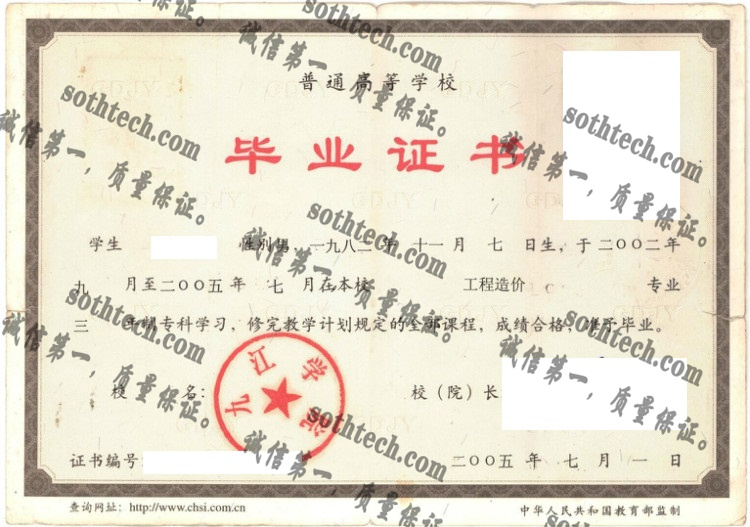 普通高等学校
毕业证书
学生 性别男 一九八二年 十一月 七 日生，于二〇〇二年
九 月至二〇〇五年 七 月在本校 工程造价 专业
三 年制专科学习，修完教学计划规定的全部课程，成绩合格，准予毕业。
校 名： 校（院）长
九江学院
证书编号 二〇〇五年七月一日
查询网址：http://www.chsi.com.cn 中华人民共和国教育部监制
sothtech.com
诚信第一，质量保证。
sothtech.com
诚信第一，质量保证。
sothtech.com
诚信第一，质量保证。
sothtech.com
诚信第一，质量保证。
sothtech.com
诚信第一，质量保证。
sothtech.com
诚信第一，质量保证。
sothtech.com
诚信第一，质量保证。